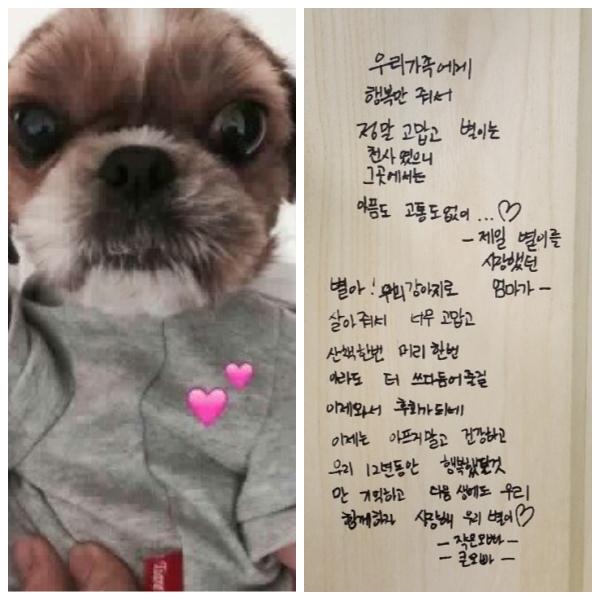 우리가족에게
행복만 줘서
정말 고맙고 별이는
천사였으니
그곳에서는
아픔도 고통도없이...♡
- 제일 별이를
사랑했던
엄마가 -
별아! 우리강아지로
살아줘서 너무 고맙고
산책한번 머리 한번
이라도 더 쓰다듬어줄걸
이제와서 후회가되네
이제는 아프지말고 건강하고
우리 12년동안 행복했던것
만 기억하고 다음 생에도 우리
함께하자 사랑해 우리 별이♡
- 작은오빠 -
- 큰오빠 -